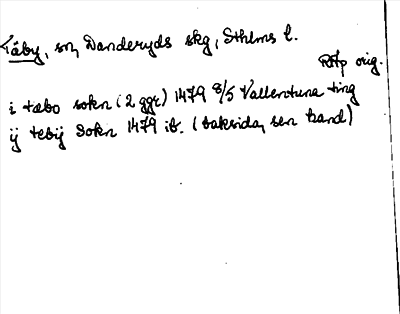 Täby, sn, Danderyds skg, Sthlms l.
RAp orig.
i tæbo sokn (2 ggr) 1479 8/5 Vallentuna ting
ij tebij Sokn 1479 ib. (baksida, sen hand)